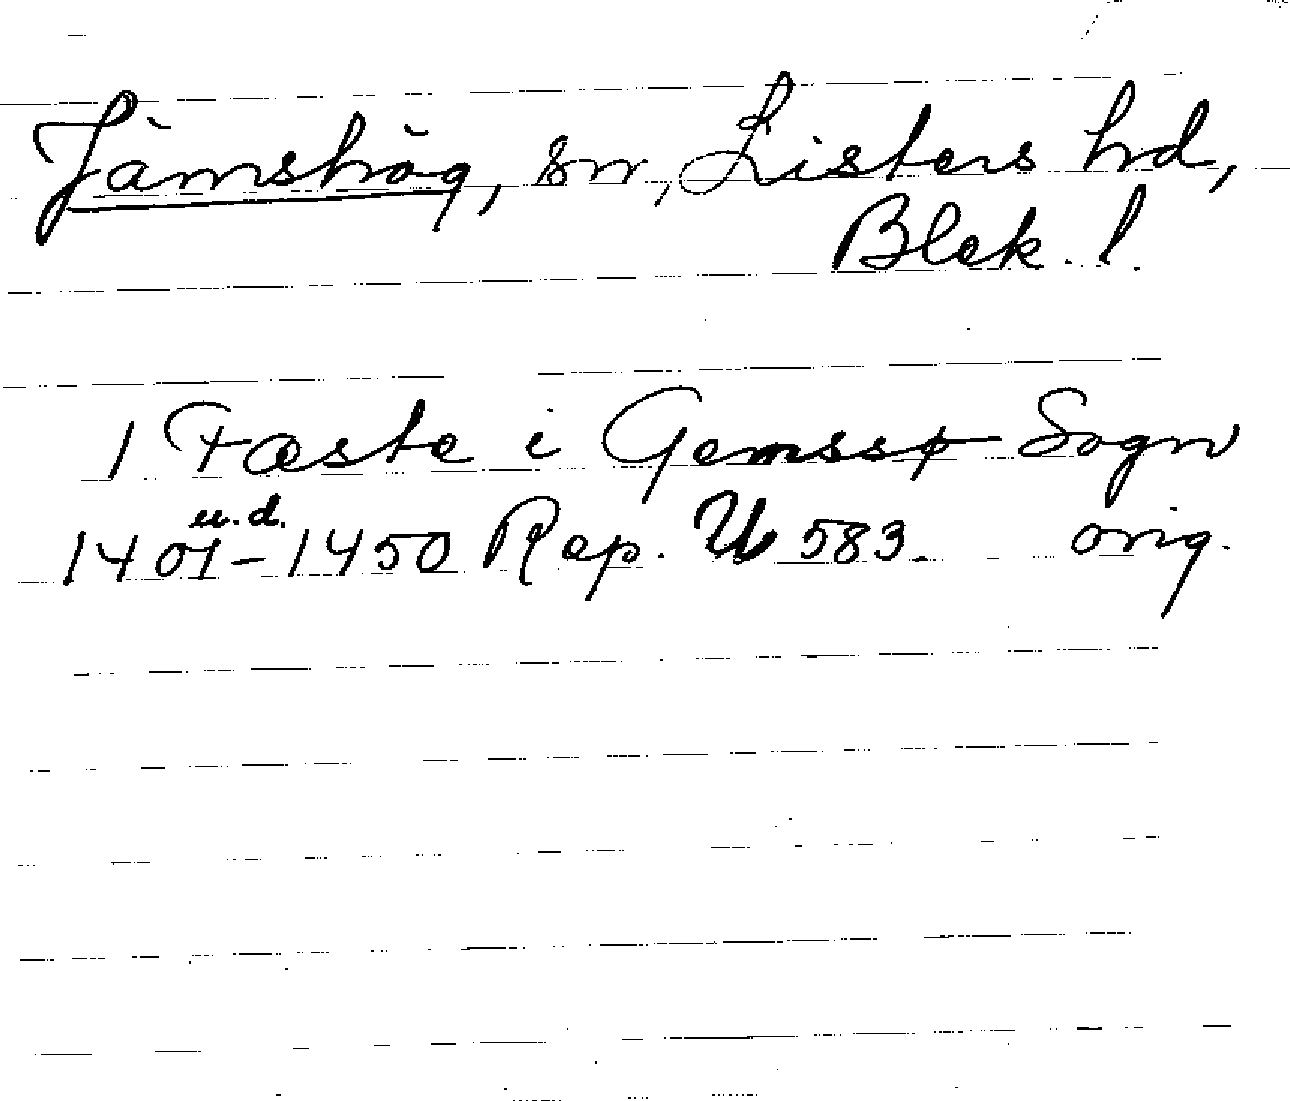 Jämshög, sn, Listers hd,
Blek. l.
1 Fæste i Gemssø Sogn
u.d.
1401-1450 Rep. U 583. orig.